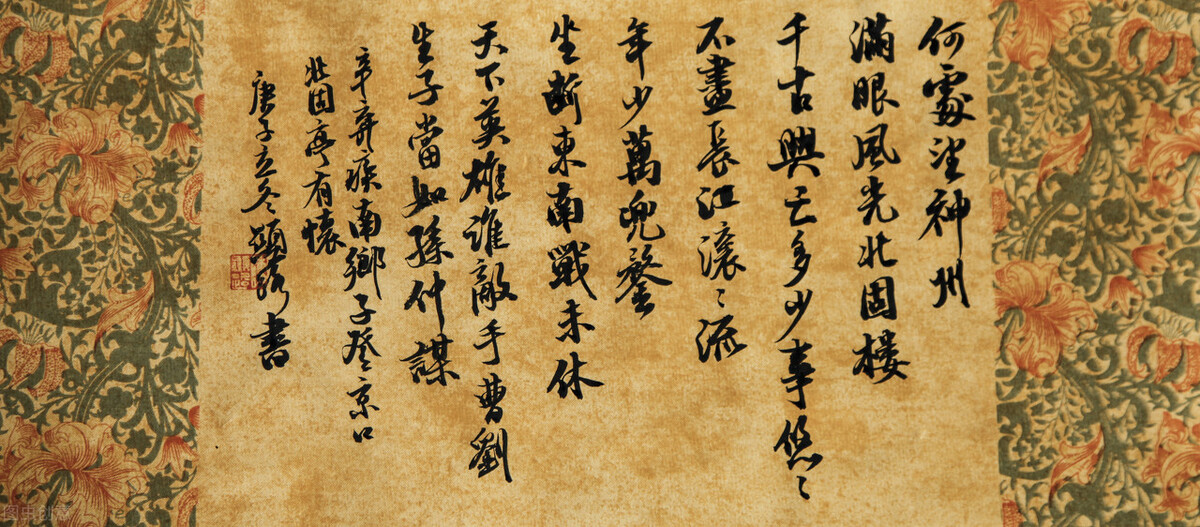 何處望神州
滿眼風光北固樓
千古興亡多少事悠〻
不盡長江滾〻流
年少萬兜鍪
坐斷東南戰未休
天下英雄誰敵手曹劉
生子當如孫仲謀
辛棄疾南鄉子登京口
北固亭有懷
庚子立冬 書
图虫创意